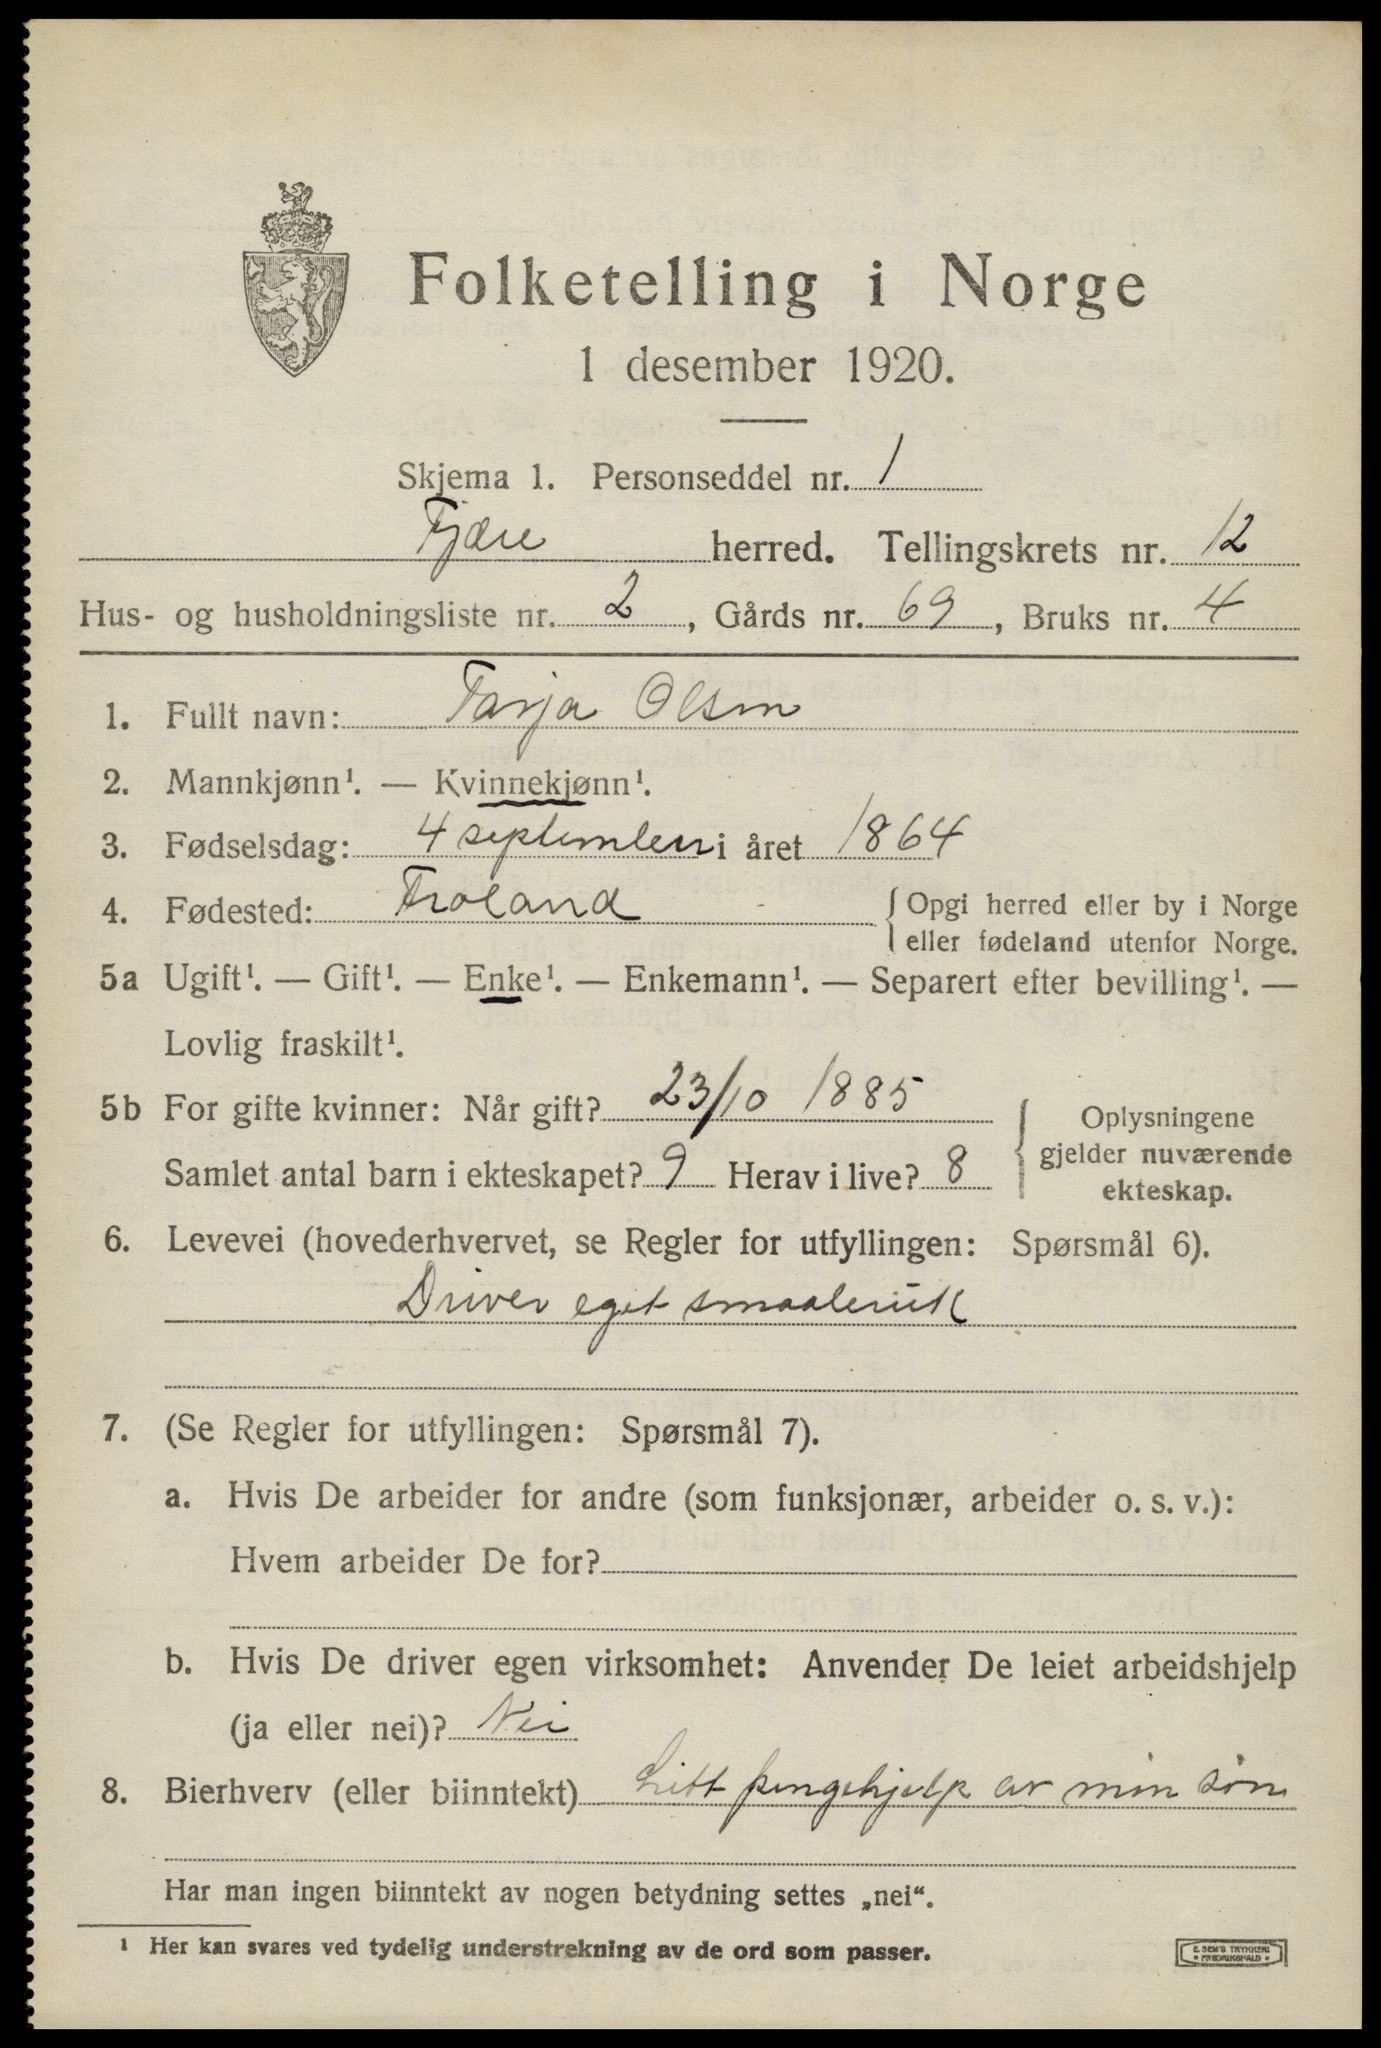 Folketelling i Norge
1 desember 1920.
Skjema 1. Personseddel nr. 1
Fjære herred. Tellingskrets nr. 12
Hus- og husholdningsliste nr. 2, Gårds nr. 69, Bruks nr. 4
1. Fullt navn: Tarja Olsen
2. Mannkjønn¹. — Kvinnekjønn¹.
3. Fødselsdag: 4 september i året 1864
4. Fødested: Froland { Opgi herred eller by i Norge
eller fødeland utenfor Norge.
5a Ugift¹. — Gift¹. — Enke¹. — Enkemann¹. — Separert efter bevilling¹. —
Lovlig fraskilt¹.
5b For gifte kvinner: Når gift? 23/10 1885
Samlet antal barn i ekteskapet? 9 Herav i live? 8
{ Oplysningene
gjelder nuværende
ekteskap.
6. Levevei (hovederhvervet, se Regler for utfyllingen: Spørsmål 6).
Driver eget smaabruk
7. (Se Regler for utfyllingen: Spørsmål 7).
a. Hvis De arbeider for andre (som funksjonær, arbeider o. s. v.):
Hvem arbeider De for?
b. Hvis De driver egen virksomhet: Anvender De leiet arbeidshjelp
(ja eller nei)? Nei
8. Bierhverv (eller biinntekt) Litt pengehjelp av min søn
Har man ingen biinntekt av nogen betydning settes „nei“.
¹ Her kan svares ved tydelig understrekning av de ord som passer.
E. SEM'S TRYKKERI
• FREDRIKSHALD •